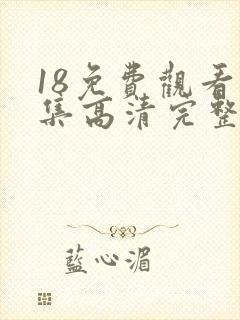 18免費觀看
集高清完整
藍心湄